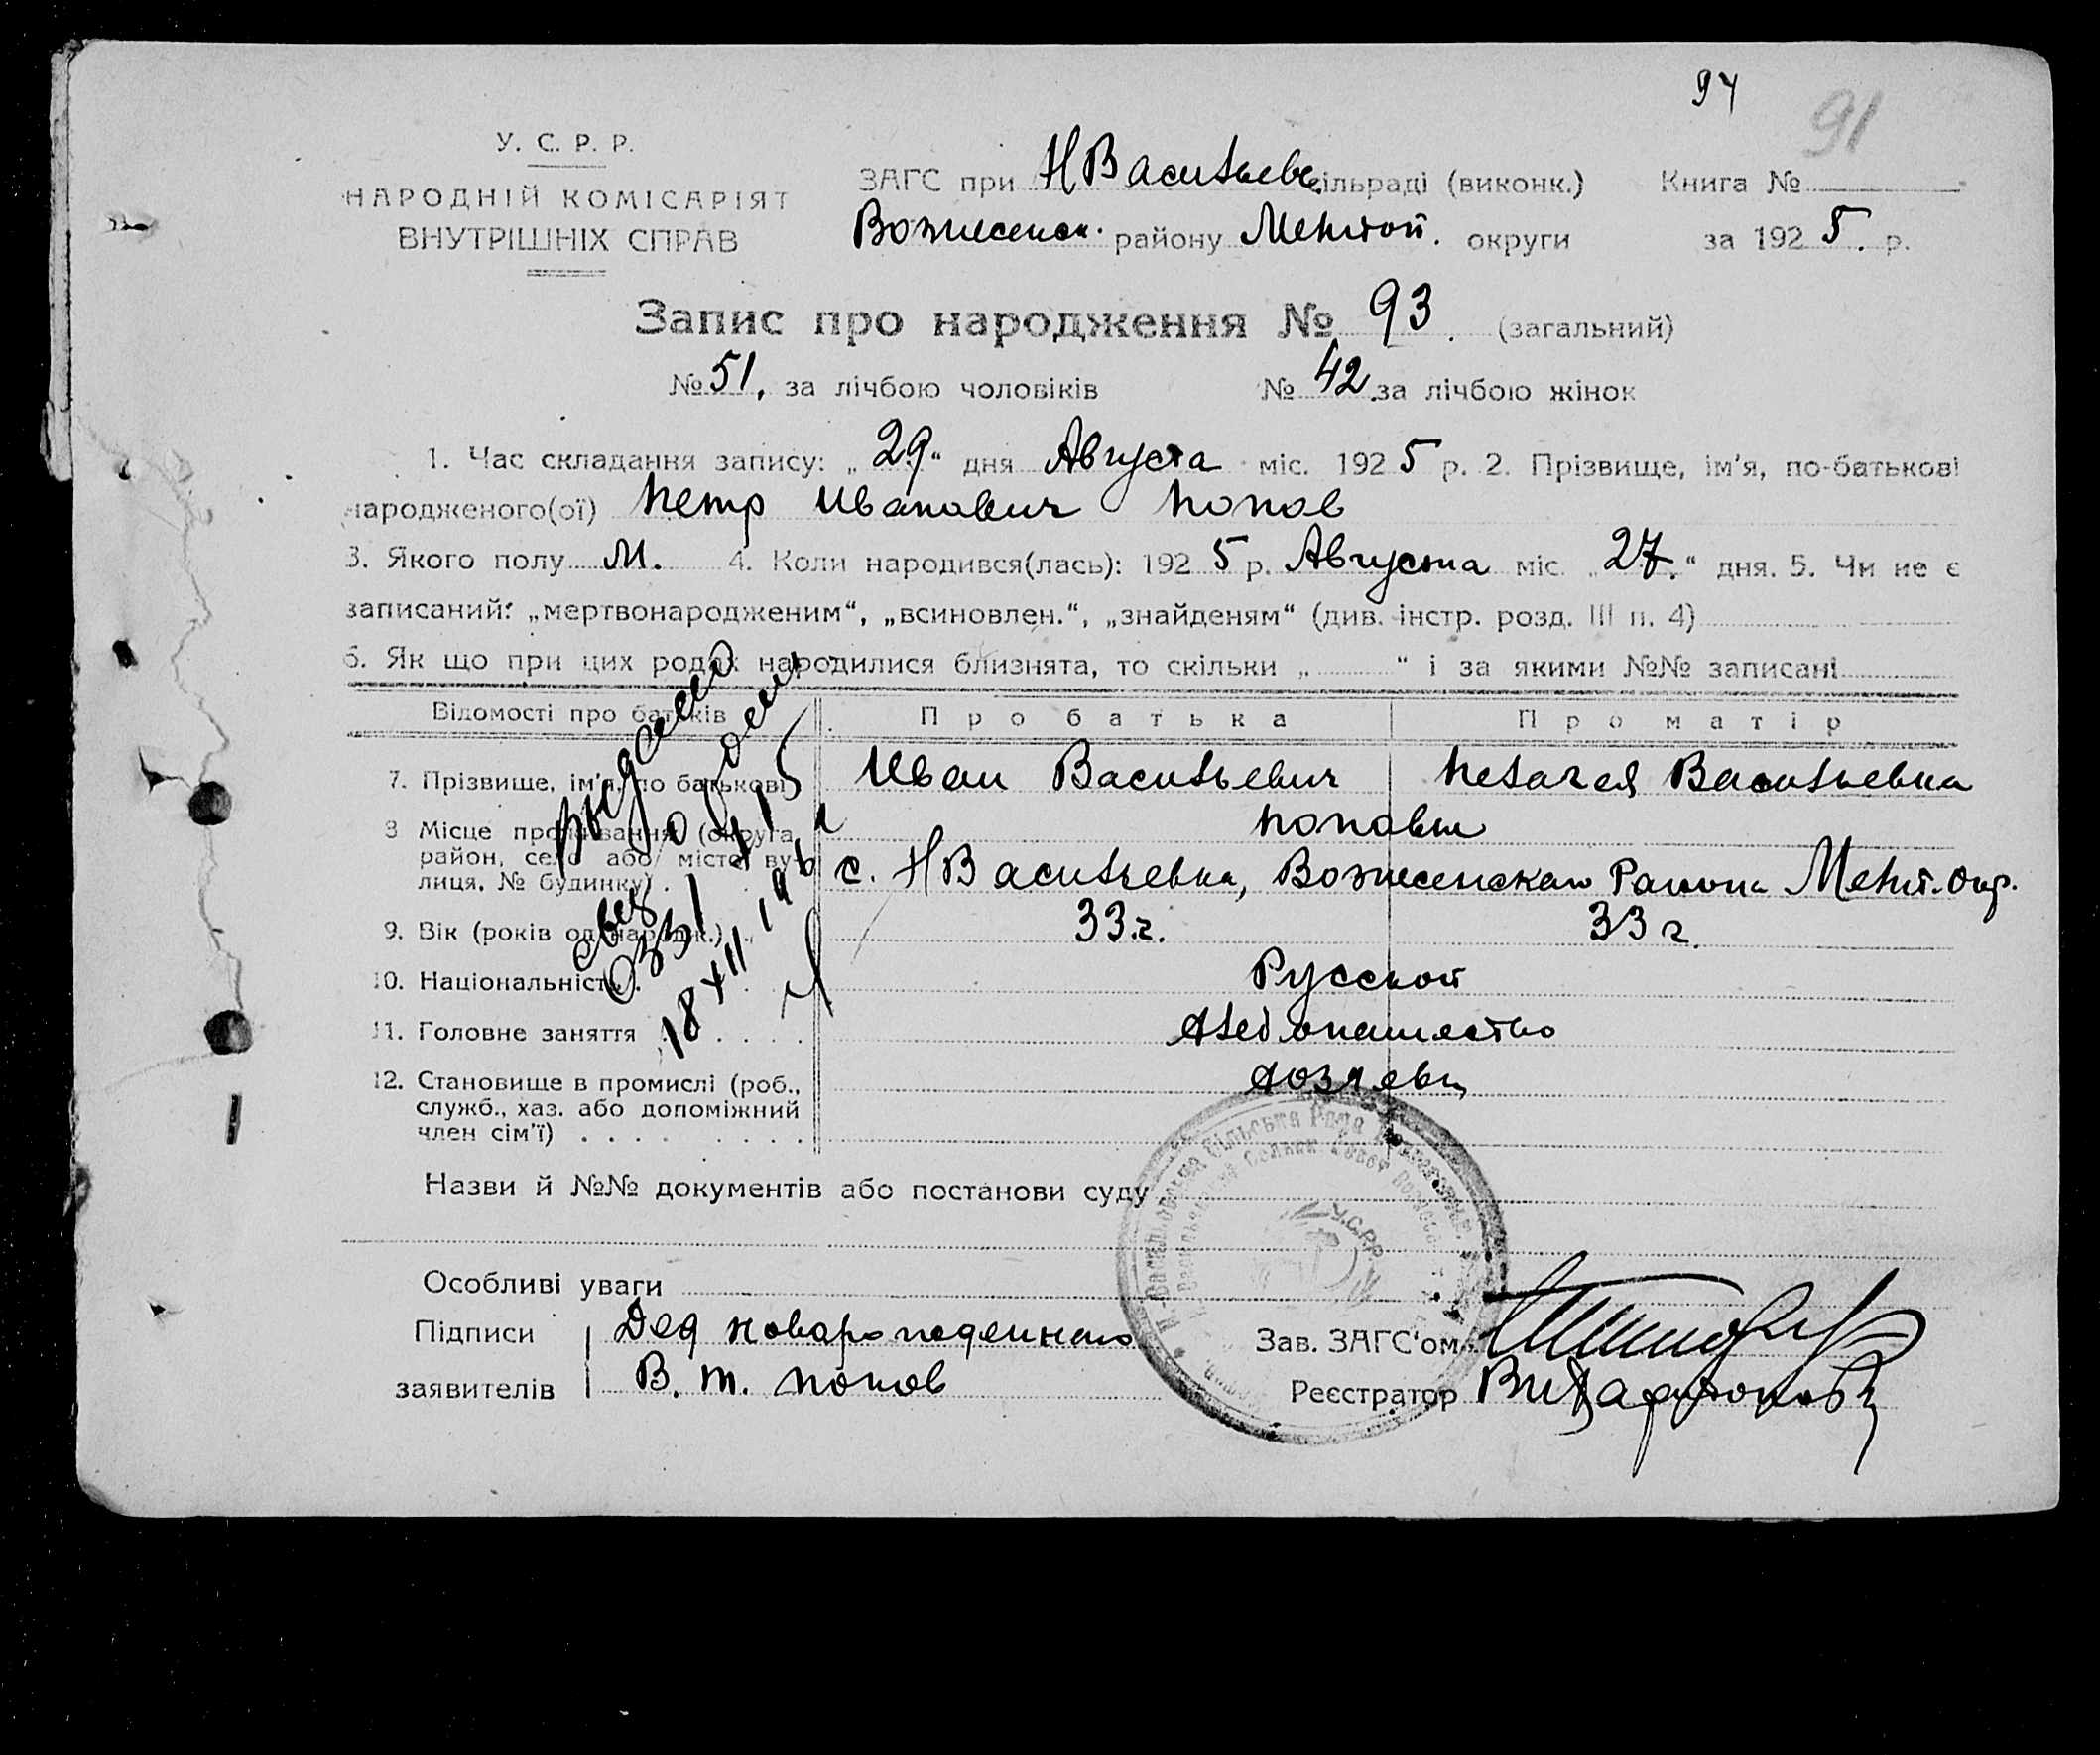 94
91
У. С. Р. Р.
НАРОДНІЙ КОМІСАРІЯТ
ВНУТРІШНІХ СПРАВ
ЗАГС при НВасильев. сільраді (виконк.) Книга №
Вознесенск. району Мелитоп. округи за 1925. р.
Запис про народження № 93. (загальний)
№ 51. за лічбою чоловіків № 42. за лічбою жінок
1. Час складання запису: „29“ дня Августа міс. 1925 р. 2. Прізвище, ім'я, по-батькові
народженого(ої) Петр Иванович Попов
3. Якого полу М. 4. Коли народився(лась): 1925 р. Августа міс. „27.“ дня. 5. Чи не є
записаний: „мертвонародженим“, „всиновлен.“, „знайденям“ (див. інстр. розд. III п. 4)
6. Як що при цих родах народилися близнята, то скільки „ “ і за якими №№ записані
Відомості про батьків Про батька Про матір
7. Прізвище, ім'я, по батькові Иван Васильевич Пелагея Васильевна
Поповы
8 Місце проживання (округа,
район, село або місто, ву-
лиця, № будинку) . с. НВасильевка, Вознесенскаго Района Мелит. Окр.
9. Вік (років од народж.) . 33 г. 33 г.
10. Національність . Русской
11. Головне заняття . . . . . Хлебопашество
12. Становище в промислі (роб.,
служб., хаз. або допоміжний
член сім'ї) . . . . . . . . Хозяева
выдано
18 XII 194
Назви й №№ документів або постанови суду
У.С.Р.Р.
Особливі уваги
Підписи Дед новорожденного Зав. ЗАГС'ом
заявителів В. Т. Попов Реєстратор